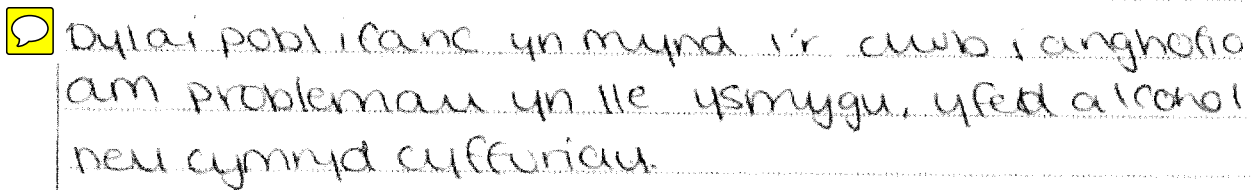 Dylai pobl ifanc yn mynd i'r clwb i anghofio
am problemau yn lle ysmygu, yfed alcohol
neu cymryd cyffuriau.